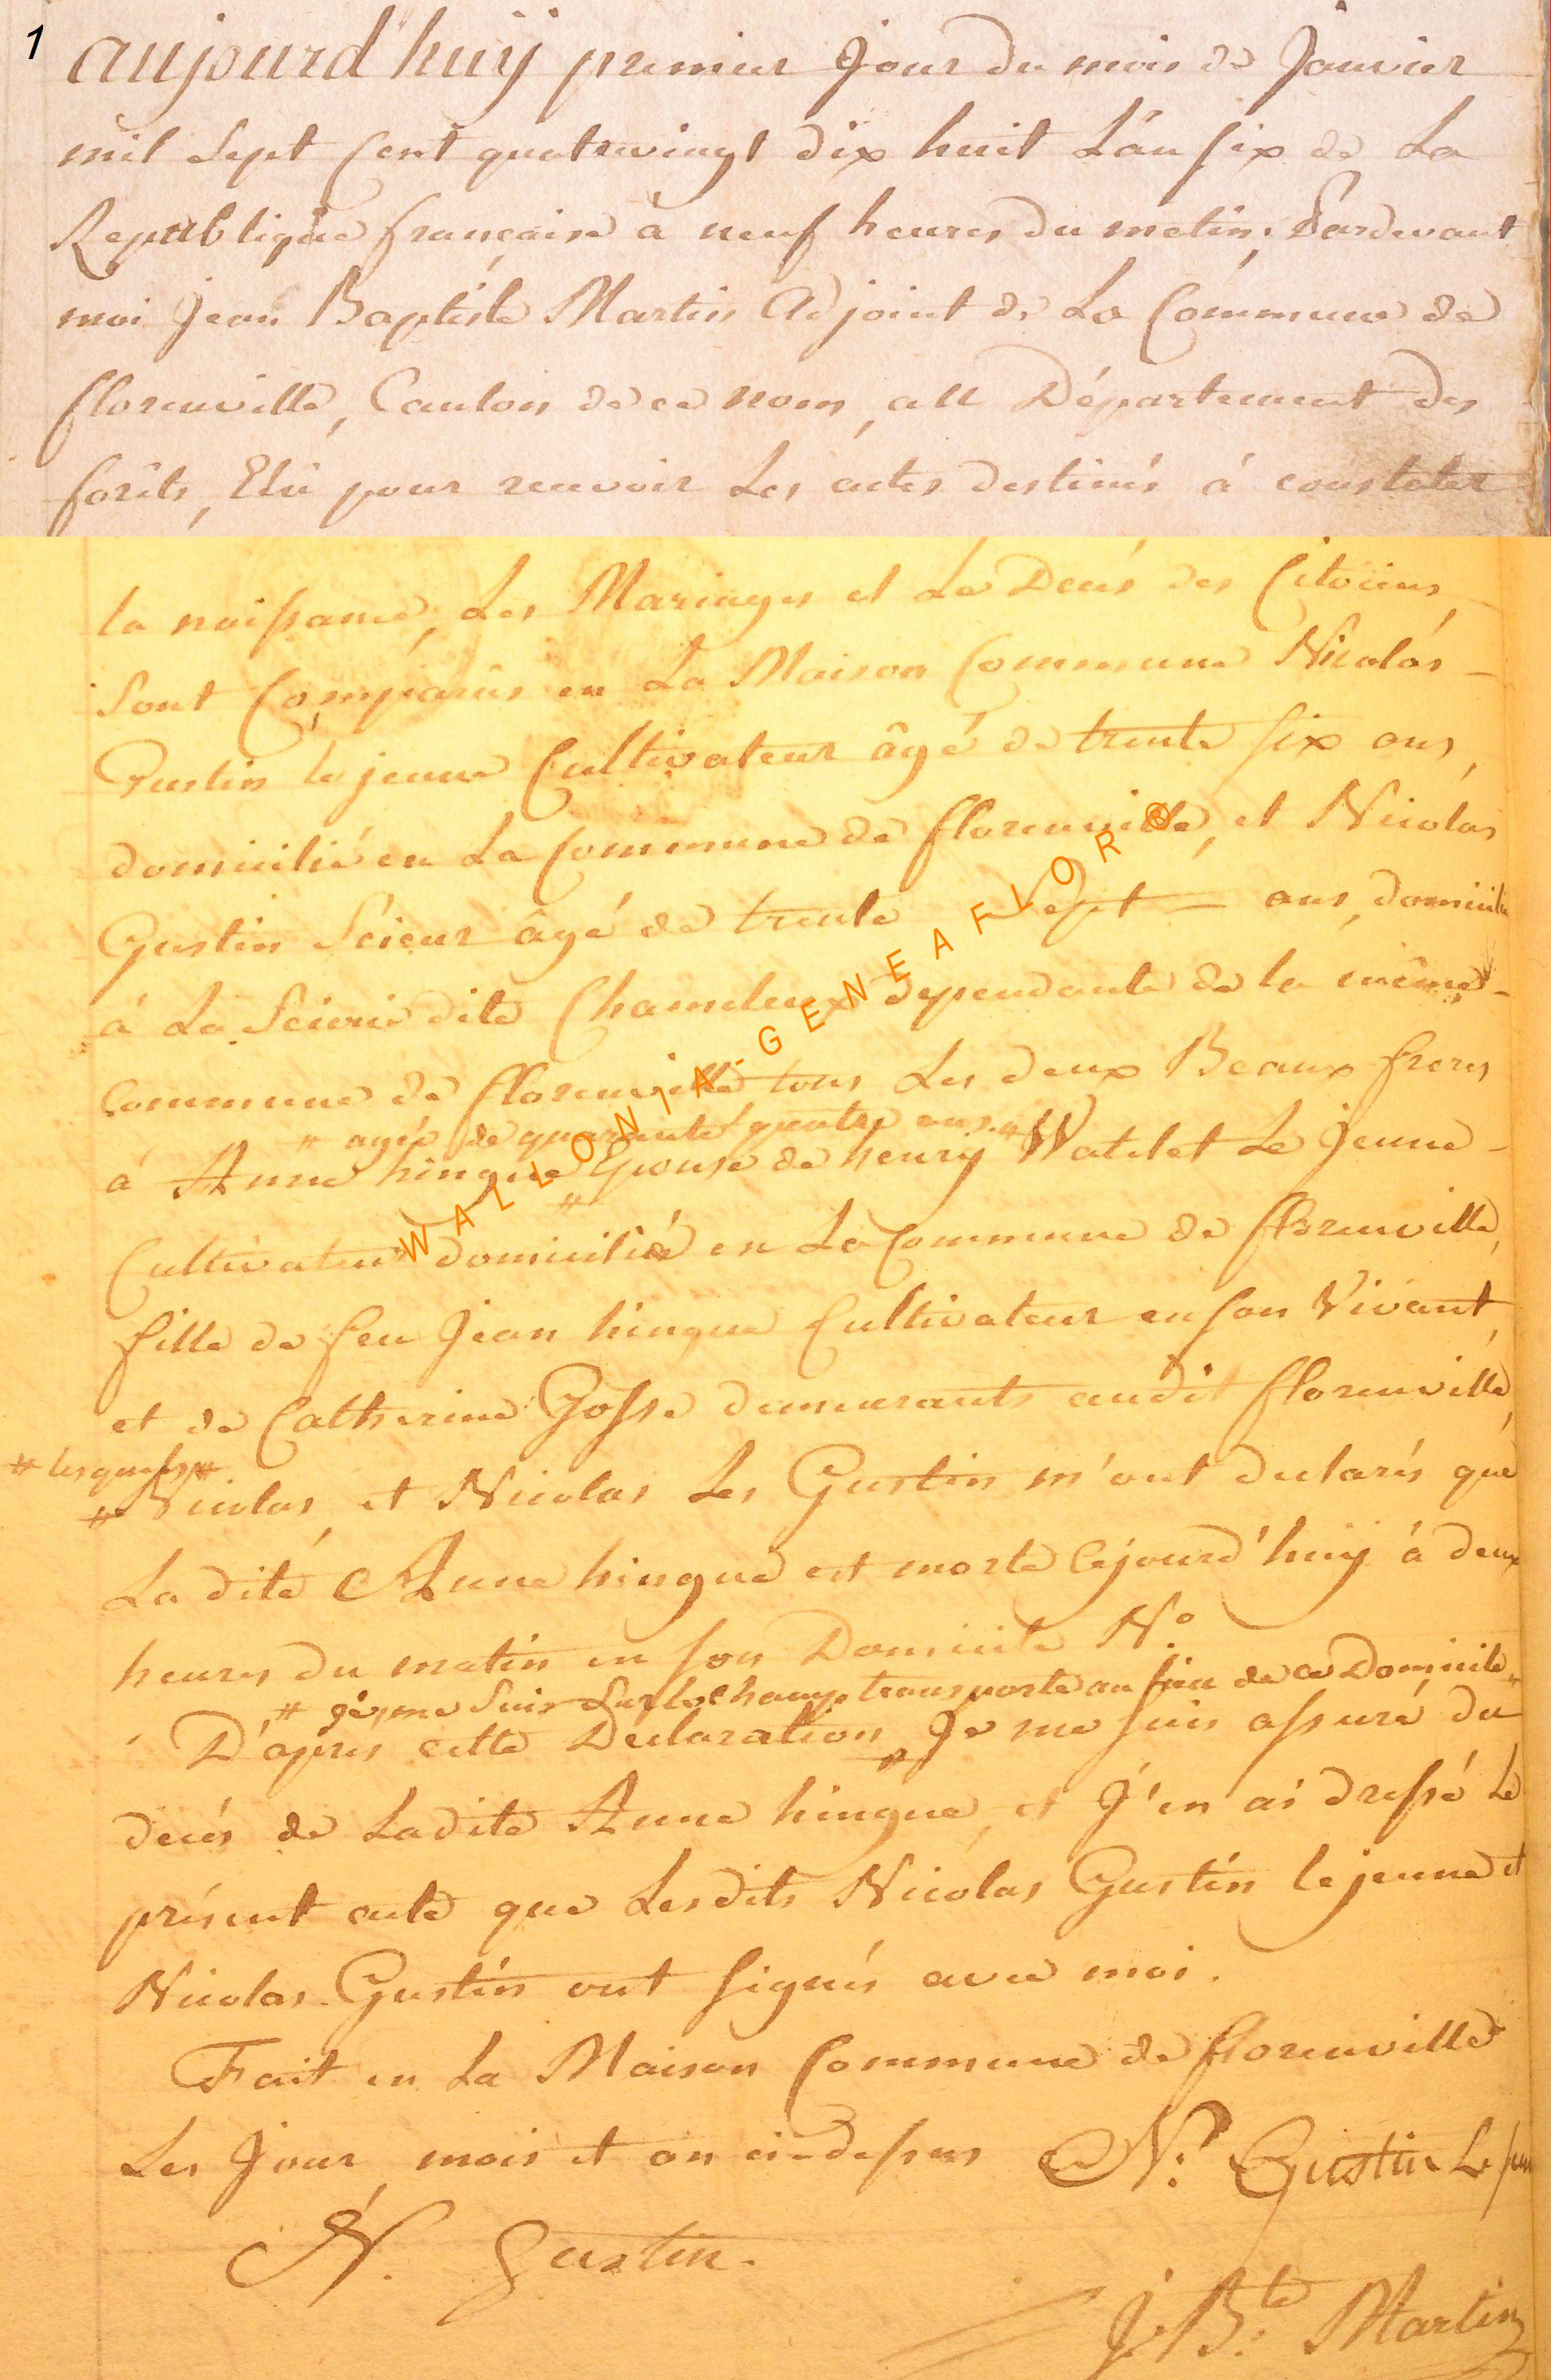 1
aujourd'huy premier Jour du mois de Janvier
mil Sept Cent quatrevingt dix huit L'an six de La
Republique française à neuf heures du matin, Pardevant
moi Jean Baptiste Martin Adjoint de La Commune de
florenville, Canton de ce nom, au Département des
forêts, Elû pour recevoir Les actes destinés à constater
la naissance, Les Mariages et Le Decés des Citoiens
Sont Comparûs en La Maison Commune Nicolas
Gustin le jeune Cultivateur âgé de trente six ans,
domicilié en La Commune de florenville, et Nicolas
Gustin Scieur âgé de trente Sept ans, domicilié
à La Scierie dite Chameleux dependante de la même
Commune de florenville tous Les deux Beaux freres
# agée de quarante quatre ans #
à Anne hingue # Epouse de henry Watelet Le Jeune
Cultivateur domiciliée en La Commune de florenville,
fille de feu Jean hingue Cultivateur en son Vivant,
et de Catherine Gosse demeurants audit florenville,
# lesquels #
# Nicolas et Nicolas Les Gustin m'ont declarés que
La dite Anne hingue est morte Cejourd'huy à deux
heures du matin en son Domicile N°.
# je me suis Sur le Champ transporté au lieu de ce Domicile #
D'après cette Declaration # Je me suis assuré du
decés de Ladite Anne hingue, et J'en ai dressé Le
présent acte que Lesdits Nicolas Gustin le jeune et
Nicolas Gustin ont signés avec moi.
Fait en La Maison Commune de florenville
Les Jour mois et an ci-dessus N. Gustin Le jeune
N. Gustin.
J. Bte. Martin
WALLONIA-GENEAFLOR®